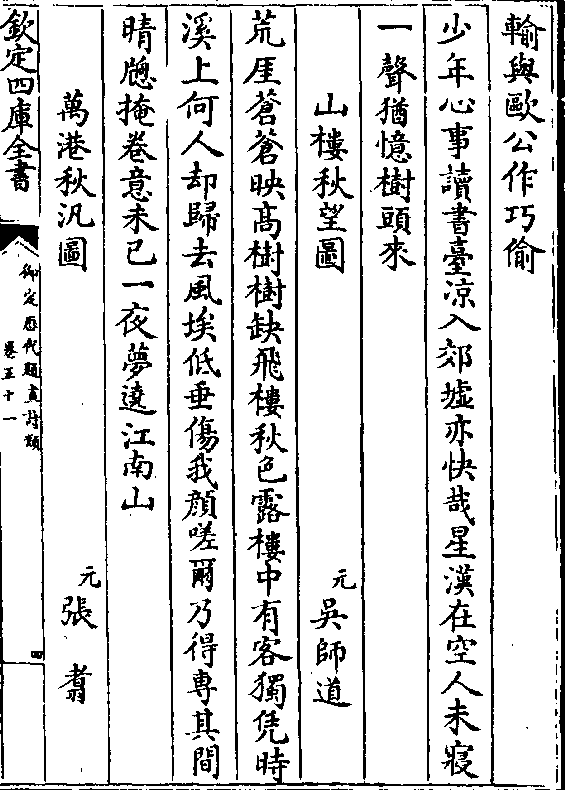 輸與歐公作巧偷
少年心事讀書臺凉入郊墟亦快哉星漢在空人未寢
一聲猶憶樹頭來
山樓秋望圖
元吳師道
荒厓蒼蒼映髙樹樹缺飛樓秋色露樓中有客獨凭時
溪上何人却歸去風埃低垂傷我顔嗟爾乃得専其間
晴牕掩卷意未已一夜夢遶江南山
萬港秋汎圖
元張翥
欽定四庫全書
御定歷代題畫詩類
卷五十一
四